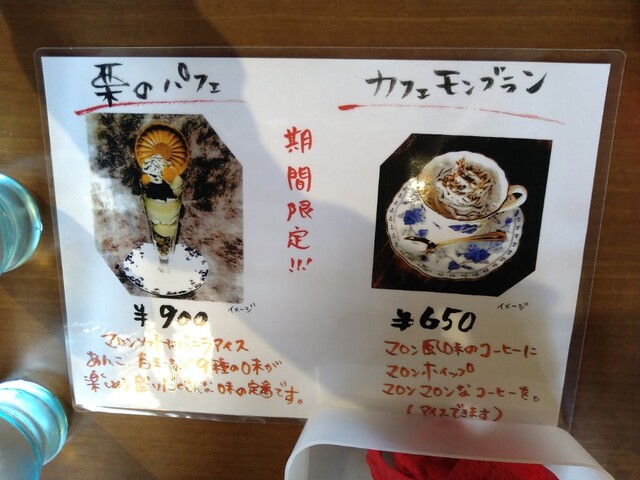 栗のパフェ
カフェモンブラン
期間限定!!!
イメージ
¥900
マロンソフト バニラアイス
あんこ 9種の味が
楽しめる 味の定番です。
イメージ
¥650
マロン風味のコーヒーに
マロンホイップ
マロンマロンなコーヒーを。
(アイスできます)